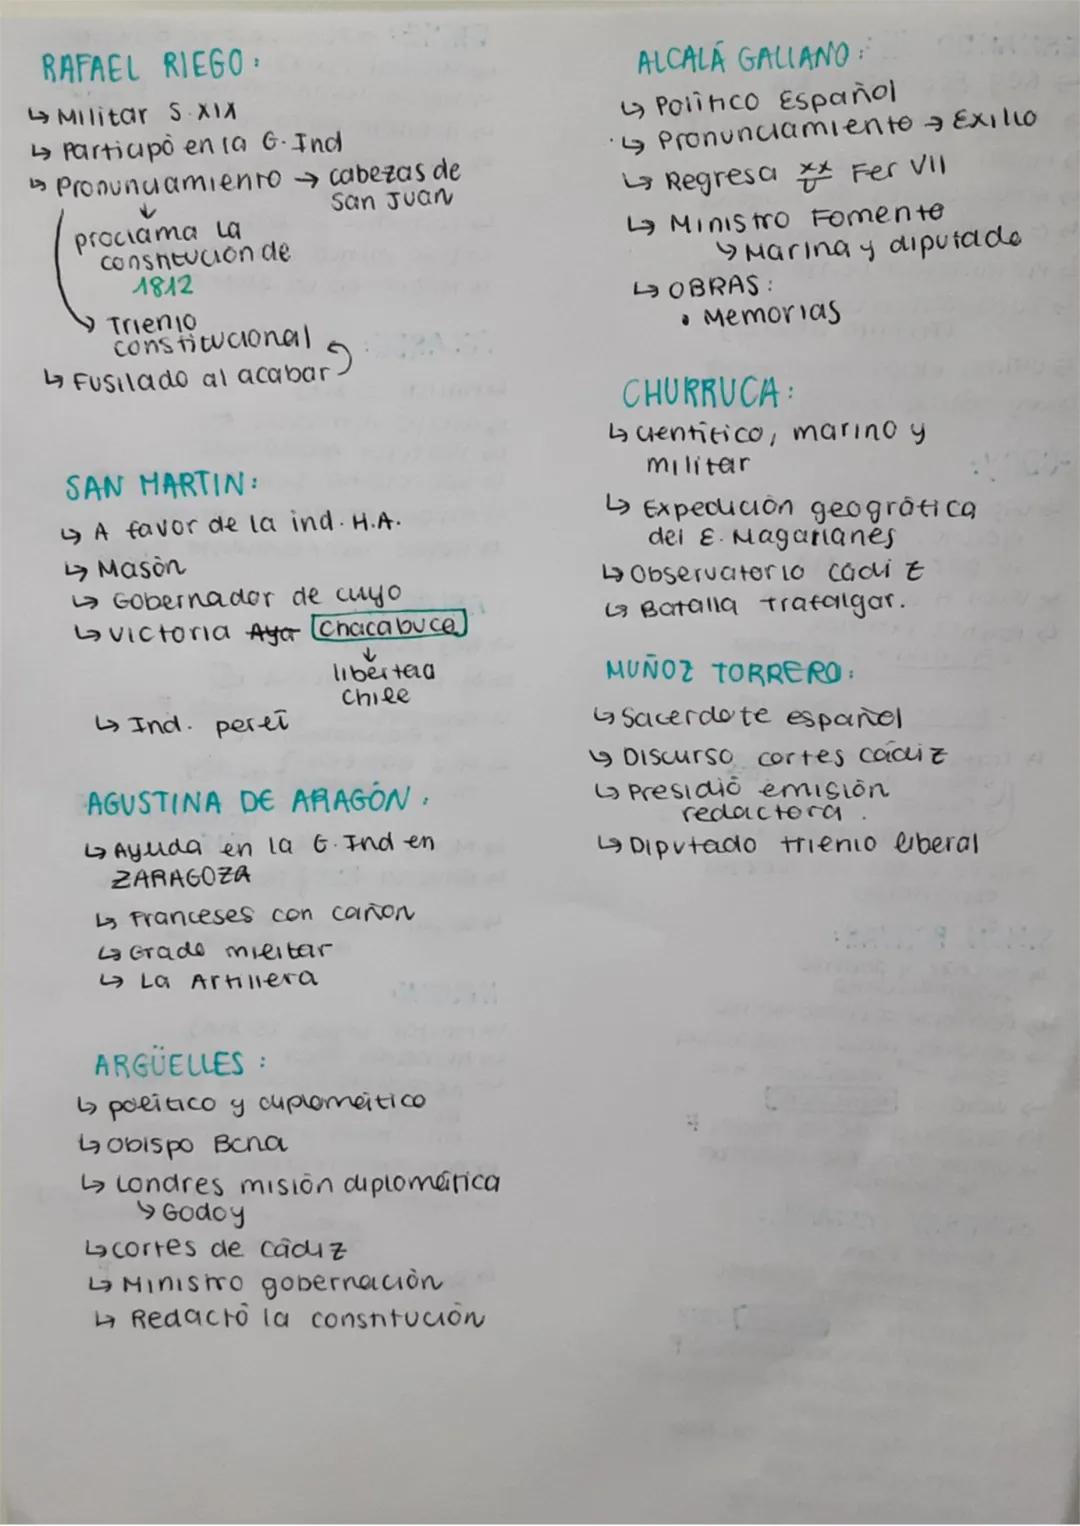 RAFAEL RIEGO:
↳ Militar S.XIX
↳ Participó en la G.Ind
↳ Pronunciamiento → cabezas de
San Juan
↓
proclama la
constitución de
1812
↘ Trienio
constitucional
↳ Fusilado al acabar
SAN MARTIN:
↳ A favor de la ind. H.A.
↳ Masón
↳ Gobernador de cuyo
↳ victoria Aya Chacabuco
↓
libertad
chile
↳ Ind. perú
AGUSTINA DE ARAGÓN.
↳ Ayuda en la G.Ind en
ZARAGOZA
↳ Franceses con cañon
↳ Grado militar
↳ La Artillera
ARGÜELLES:
↳ político y diplomático
↳ obispo Bcna
↳ Londres misión diplomática
↘ Godoy
↳ cortes de cádiz
↳ Ministro gobernación
↳ Redactó la constitución
ALCALÁ GALIANO:
↳ Político Español
↳ Pronunciamiento → Exilio
↳ Regresa Fer VII
↳ Ministro Fomento
↘ Marina y diputado
↳ OBRAS:
• Memorias
CHURRUCA:
↳ científico, marino y
militar
↳ Expedición geográfica
del E. Magallanes
↳ Observatorio cádiz
↳ Batalla trafalgar.
MUÑOZ TORRERO:
↳ Sacerdote español
↳ Discurso cortes cádiz
↳ Presidió emisión
redactora.
↳ Diputado trienio liberal